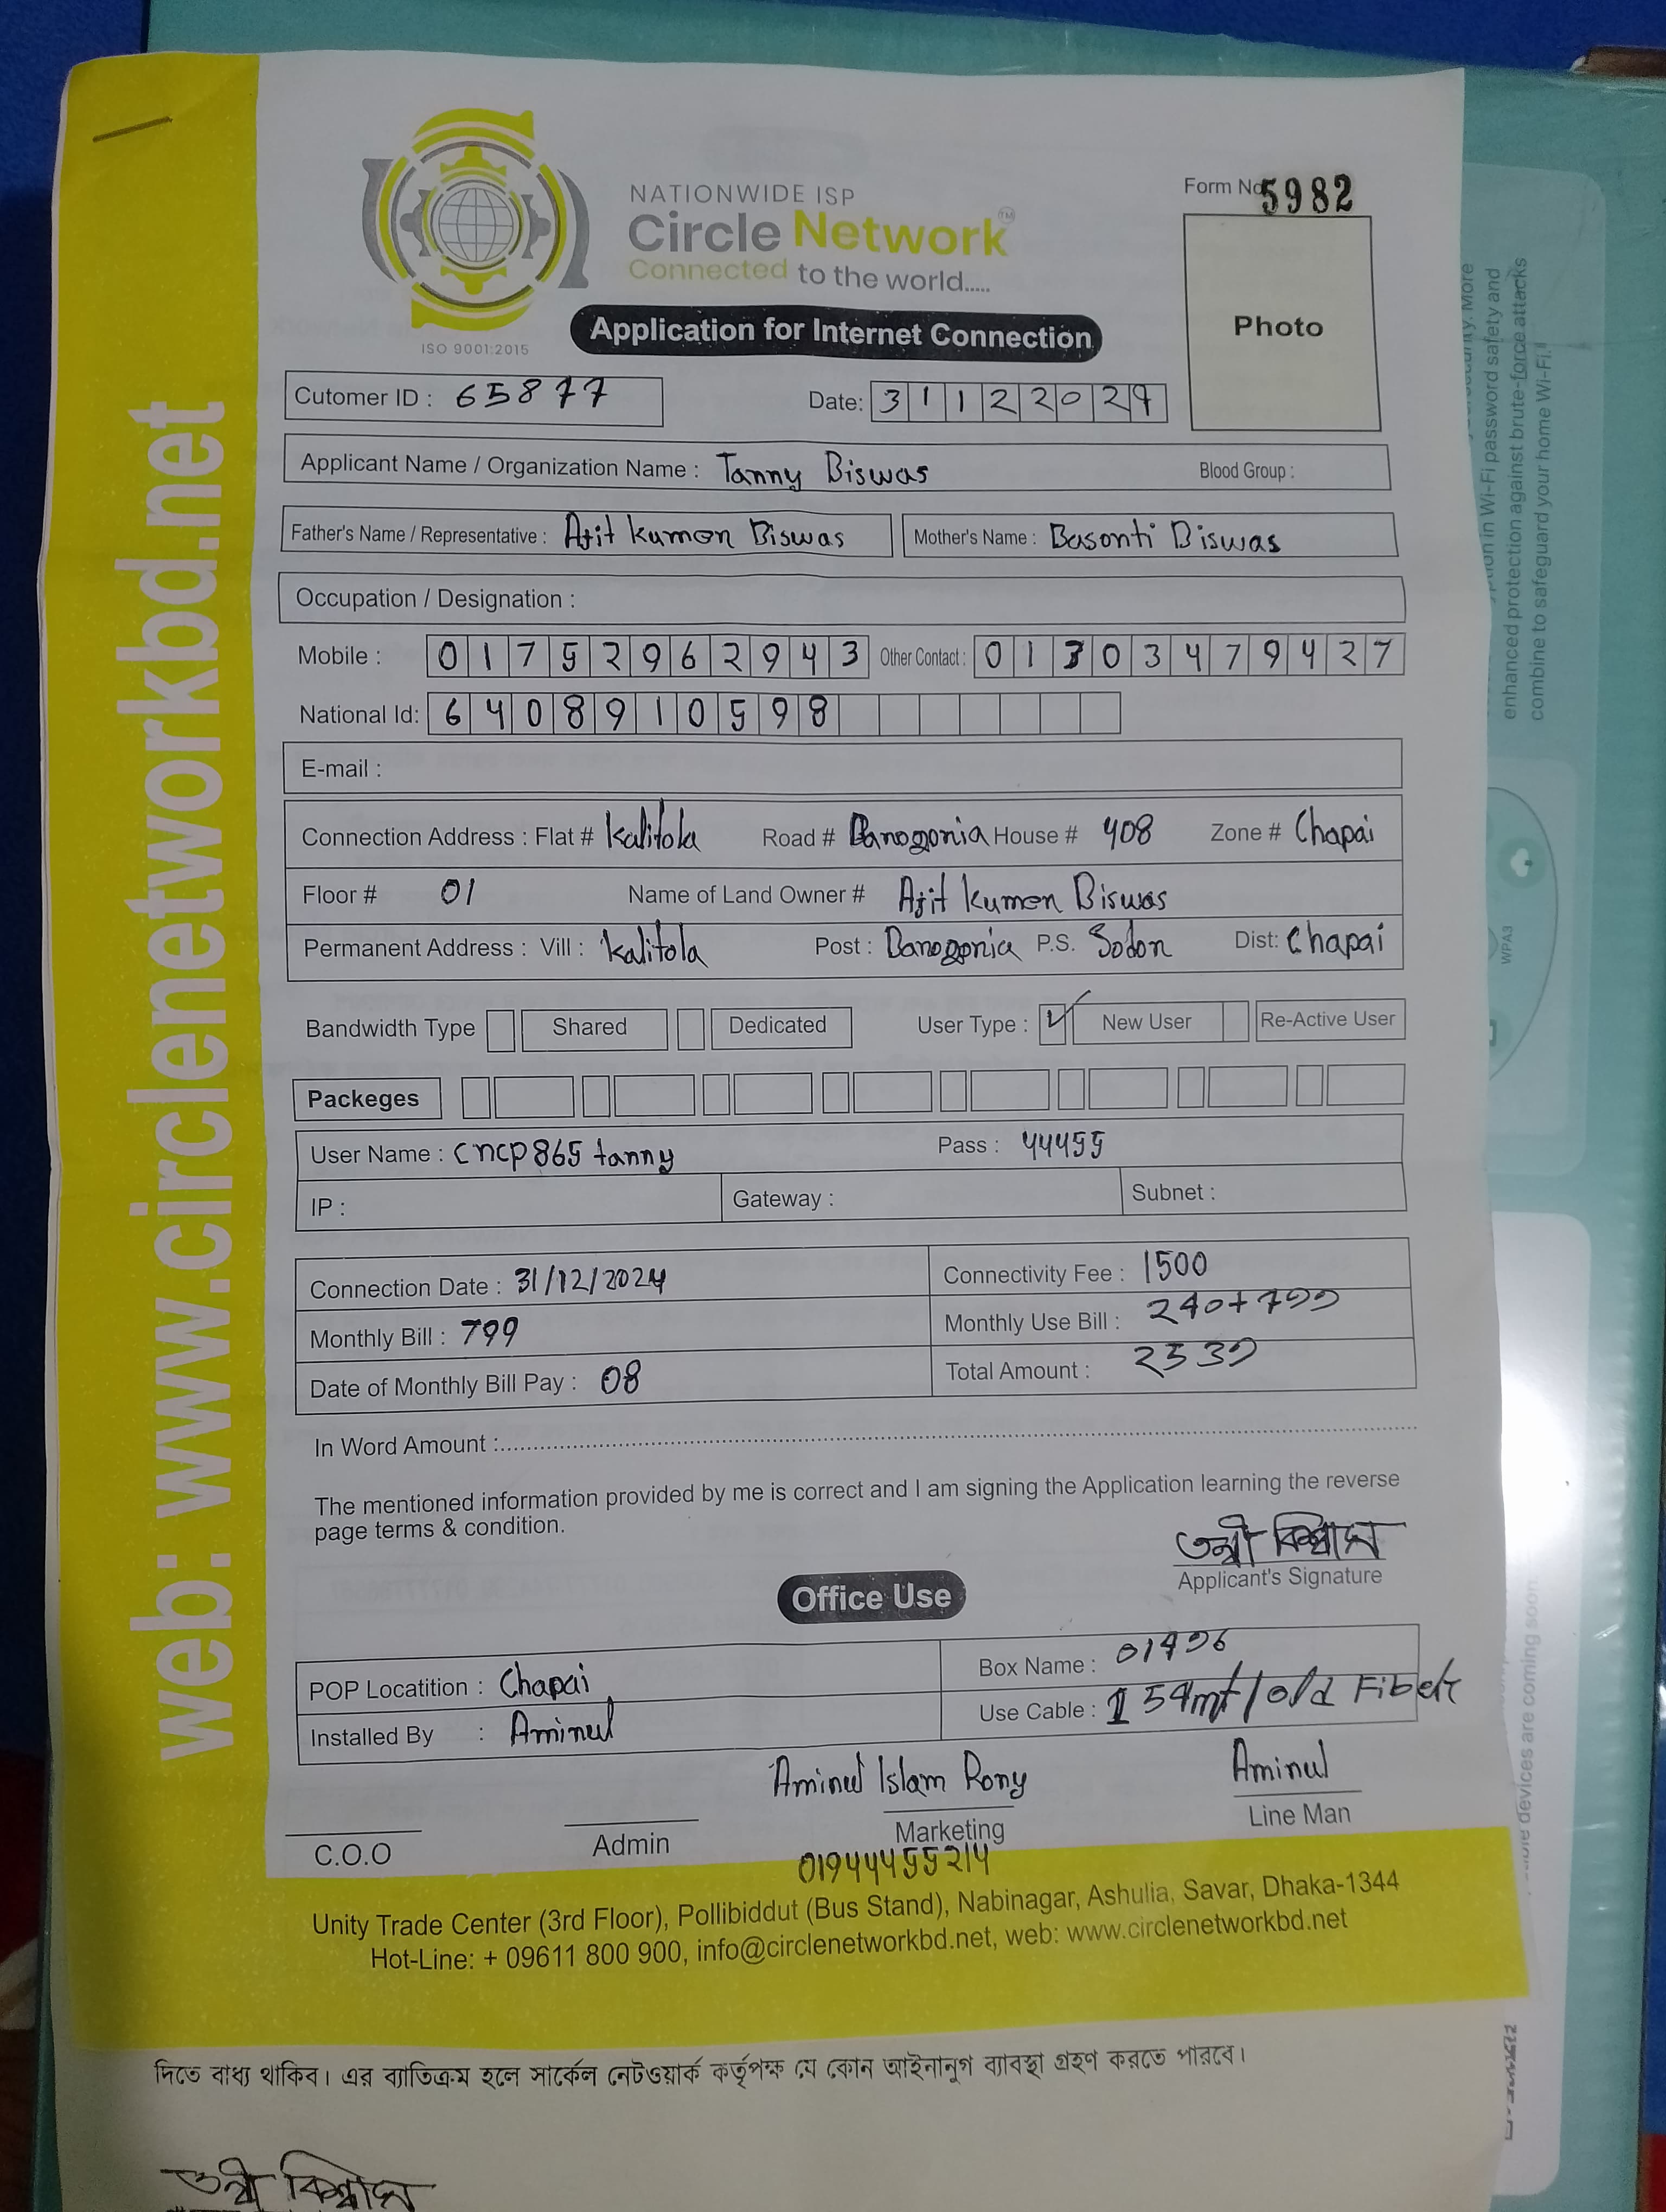 NATIONWIDE ISP
Circle Network™
Connected to the world.....
ISO 9001:2015
Form No 5982
Photo
Application for Internet Connection
Cutomer ID : 65877 Date: 31122024
Applicant Name / Organization Name : Tanny Biswas Blood Group :
Father's Name / Representative : Ajit Kumar Biswas Mother's Name : Basonti Biswas
Occupation / Designation :
Mobile : 01752962943 Other Contact : 01303479427
National Id: 6408910598
E-mail :
Connection Address : Flat # Kalitola Road # Barogoria House # 408 Zone # Chapai
Floor # 01 Name of Land Owner # Ajit Kumar Biswas
Permanent Address : Vill : Kalitola Post : Barogoria P.S. Sodor Dist: Chapai
Bandwidth Type Shared Dedicated User Type : New User Re-Active User
Packeges
User Name : cncp865tanny Pass : 44455
IP : Gateway : Subnet :
Connection Date : 31/12/2024 Connectivity Fee : 1500
Monthly Bill : 799 Monthly Use Bill : 240+799
Date of Monthly Bill Pay : 08 Total Amount : 2539
In Word Amount :
The mentioned information provided by me is correct and I am signing the Application learning the reverse
page terms & condition.
তন্বী বিশ্বাস
Applicant's Signature
Office Use
POP Locatition : Chapai Box Name : 01496
Installed By : Aminul Use Cable : 154mt/old Fiber
Aminul Islam Rony Aminul
C.O.O Admin Marketing Line Man
01944455214
Unity Trade Center (3rd Floor), Pollibiddut (Bus Stand), Nabinagar, Ashulia, Savar, Dhaka-1344
Hot-Line: + 09611 800 900, info@circlenetworkbd.net, web: www.circlenetworkbd.net
web: www.circlenetworkbd.net
দিতে বাধ্য থাকিব। এর ব্যাতিক্রম হলে সার্কেল নেটওয়ার্ক কর্তৃপক্ষ যে কোন আইনানুগ ব্যাবস্থা গ্রহণ করতে পারবে।
তন্বী বিশ্বাস
in Wi-Fi password safety and
enhanced protection against brute-force attacks
combine to safeguard your home Wi-Fi.
WPA3
devices are coming soon.